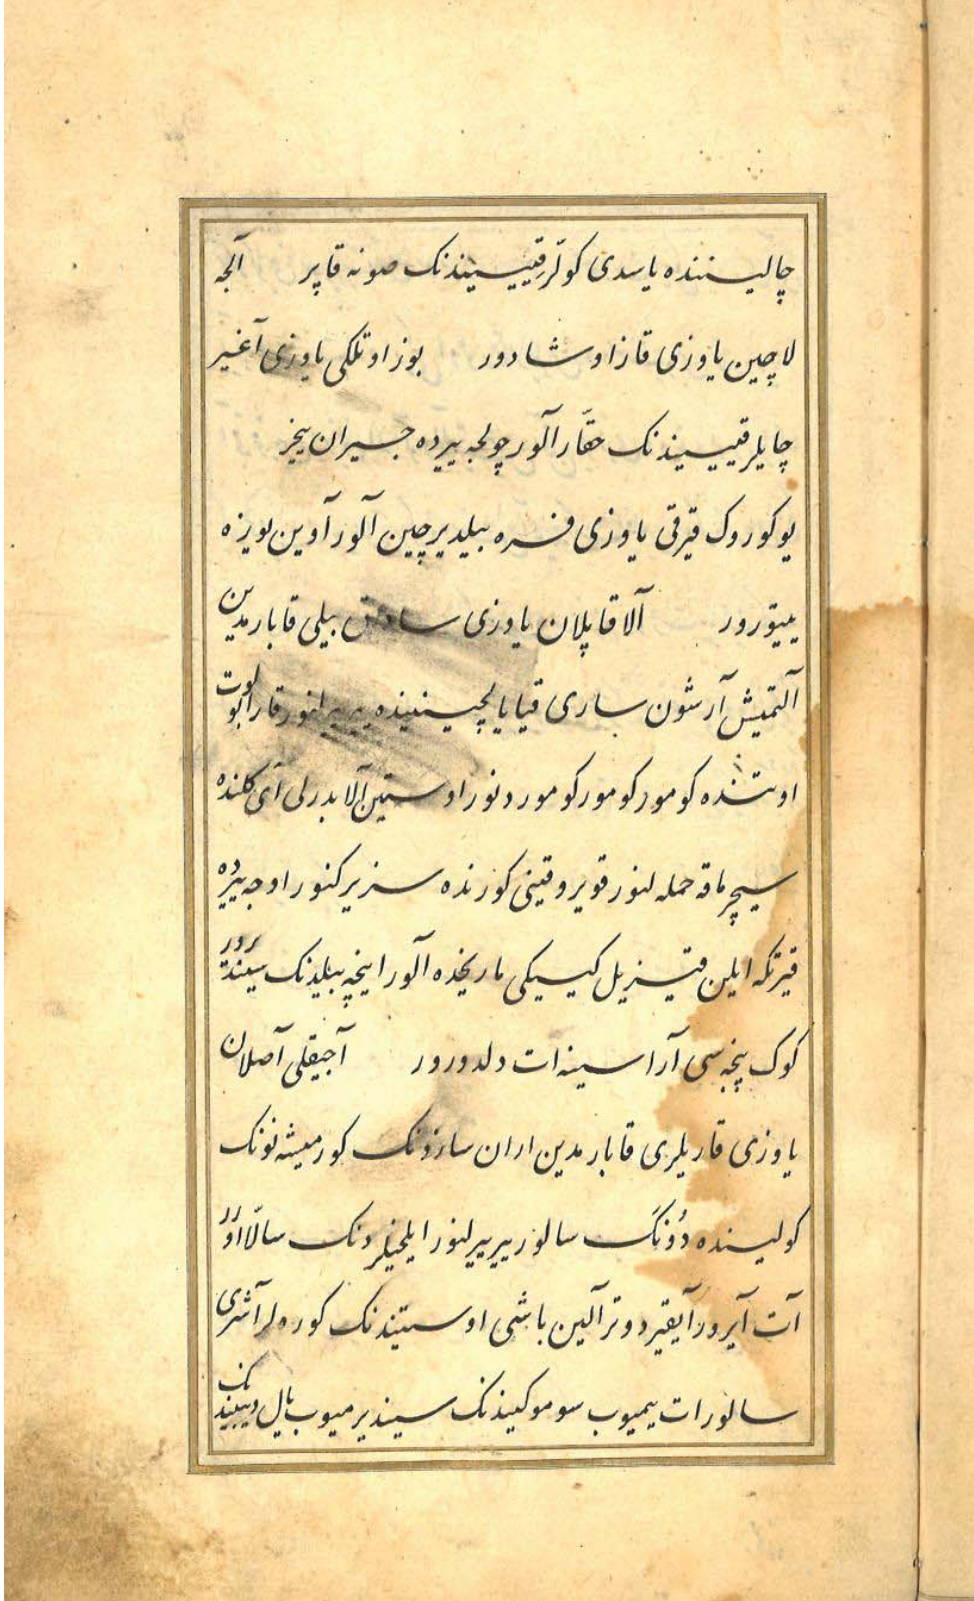 چالیننده یاسدی کولّر قییسیندنک صونه قاپر آلجه
لاچین یاوزی قاز اوشادور بوز اوتلکی یاوزی آغیر
چایلر قییسیندنک حقّار آلور چولجه ییرده جیران ییخر
یوکوروک قیرقی یاوزی فسره بیلدیرچین آلور آوین یویزه
ییتورور آلا قاپلان یاوزی ساووق بیلی قابارمدین
آلتمیش آرشون ساری قیا یالچینینده ییریرلنور قارا بولوت
اوستنده کومور کومور کوموردنور اوستین آلا بدرلی آی کلنده
سیچرماقه حمله لنور قویروقینی کورنده سزیرکنور اوجه ییرده
قیرتکه ایلن قیزیل کییکی ماریخده آلور اینچه بیلیدنک سیندرور
کوک پنجه‌سی آراسینه ات دلدورور آجیقلی آصلان
یاوزی قاریلری قابارمدین اران سازدنک کورمیشه نونک
کولیسنده دُونَک سالور ییرییرلنور ایلخیلردنک سالّاوور
آت آیرور آیقیر دوتر آلین باشی اوستیندنک کوره لر آشری
سالور ات ییمیوب سوموکیندنک سیندیرمیوب یال دیبیندنک